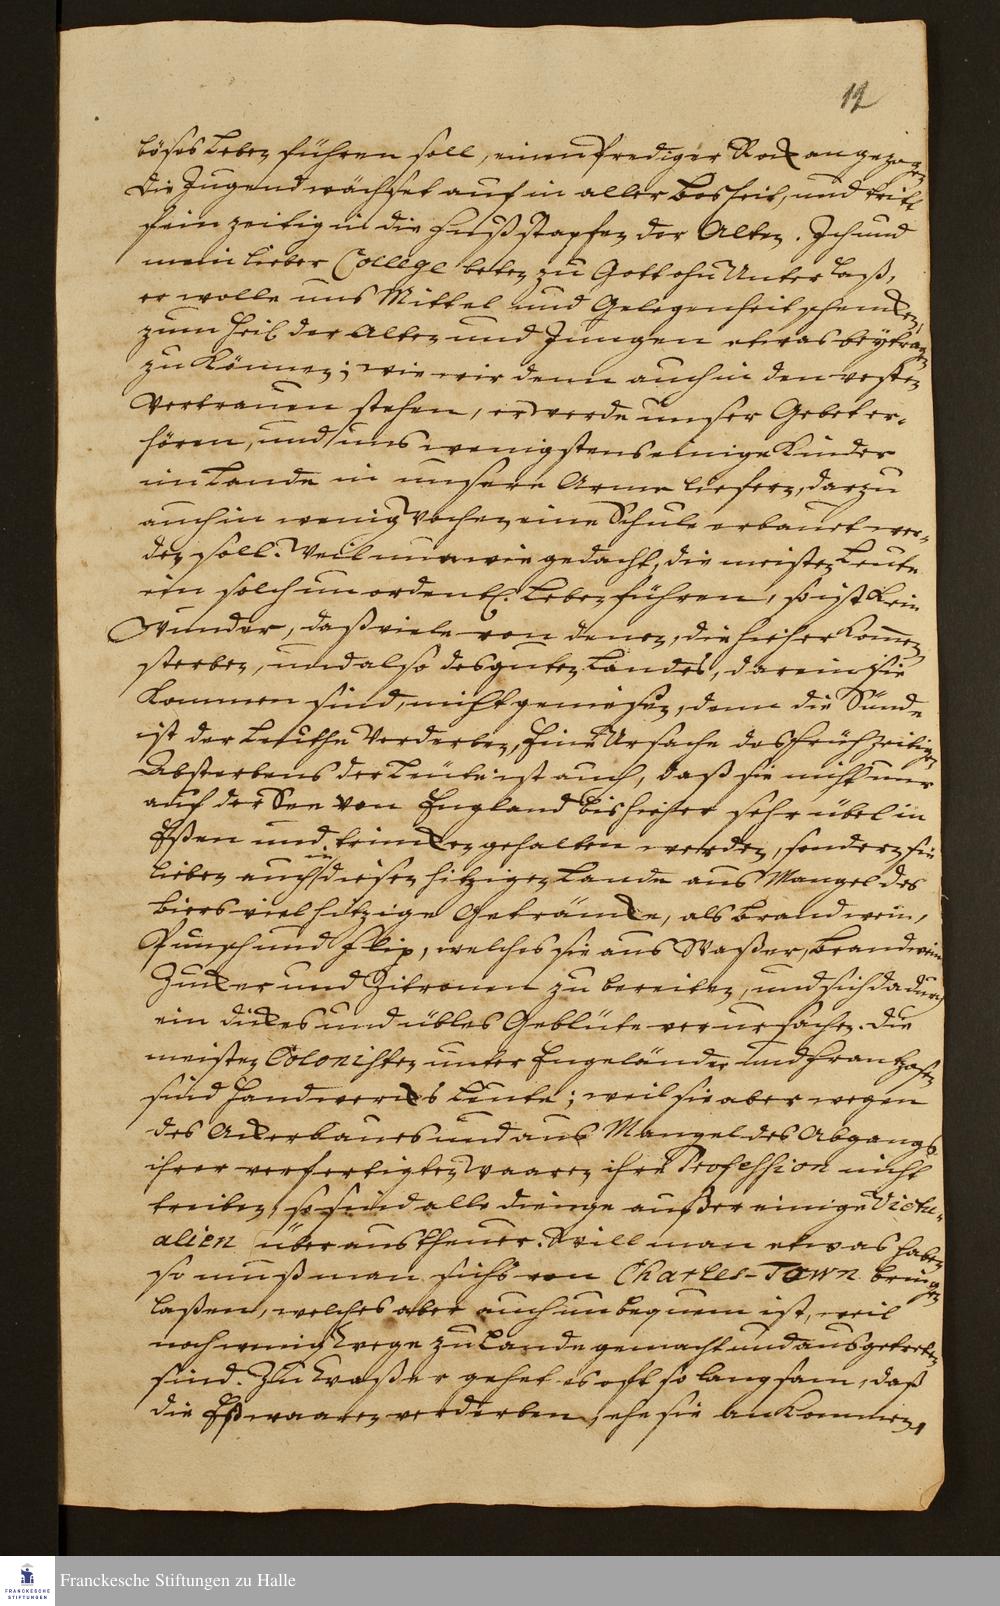 12
böses Leben führen soll, einen Prediger Rock angezogen
Die Jugend wächset auf in aller Bosheit, und tritt
fein zeitig in die Fußstapfen der Alten. Ich und
mein lieber College beten zu Gott ohn Unterlaß,
er wolle uns Mittel und Gelegenheit schencken,
zum Heil der Alten und Jungen etwas beytragen
zu können; wie wir denn auch in den vesten
Vertrauen stehen, er werde unser Gebet er-
hören, und uns wenigstens einige Kinder
im Lande in unsere Arme liefern, darzu
auch in wenig Wochen eine Schule erbauet wer-
den soll. Weil nun wie gedacht, die meisten Leute
ein solch unordentl. Leben führen, so ist kein
Wunder, daß viele von denen, die hieher kommen
sterben, und also des guten Landes, darein sie
kommen sind, nicht geniesen, denn die Sünde
ist der Leuthe Verderben, Eine Ursache des frühzeitigen
Absterbens der Leute ist auch, daß sie nicht nur
auf der See von England bis hieher sehr übel in
Eßen und trincken gehalten werden, sondern sie
lieben auch in diesen hitzigen Lande aus Mangel des
Biers viel hitzige Geträncke, als Brandwein,
Punsch und Flip, welches sie aus Waßer, Brandwein
Zucker und Zitronen zu bereiten, und sich dadurch
ein dickes und übles Geblüte verursachen. Die
meisten Colonisten unter Engeländer und Frantzosen
sind Handwercks Leute; weil sie aber wegen
des Ackerbaues und aus Mangel des Abgangs
ihrer verfertigten Waaren ihre Profession nicht
treiben, so sind alle dienge außer einige Victu-
alien überaus theuer. Will man etwas haben
so muß man sichs von Charles-Town bringen
laßen, welches aber auch unbequem ist, weil
noch wenig Wege zu Lande gemacht und ausgetreten
sind. Zu Waßer gehet es oft so langsam, daß
die Eßwaaren verderben, ehe sie ankommen,
Franckesche Stiftungen zu Halle
FRANCKESCHE
STIFTUNGEN